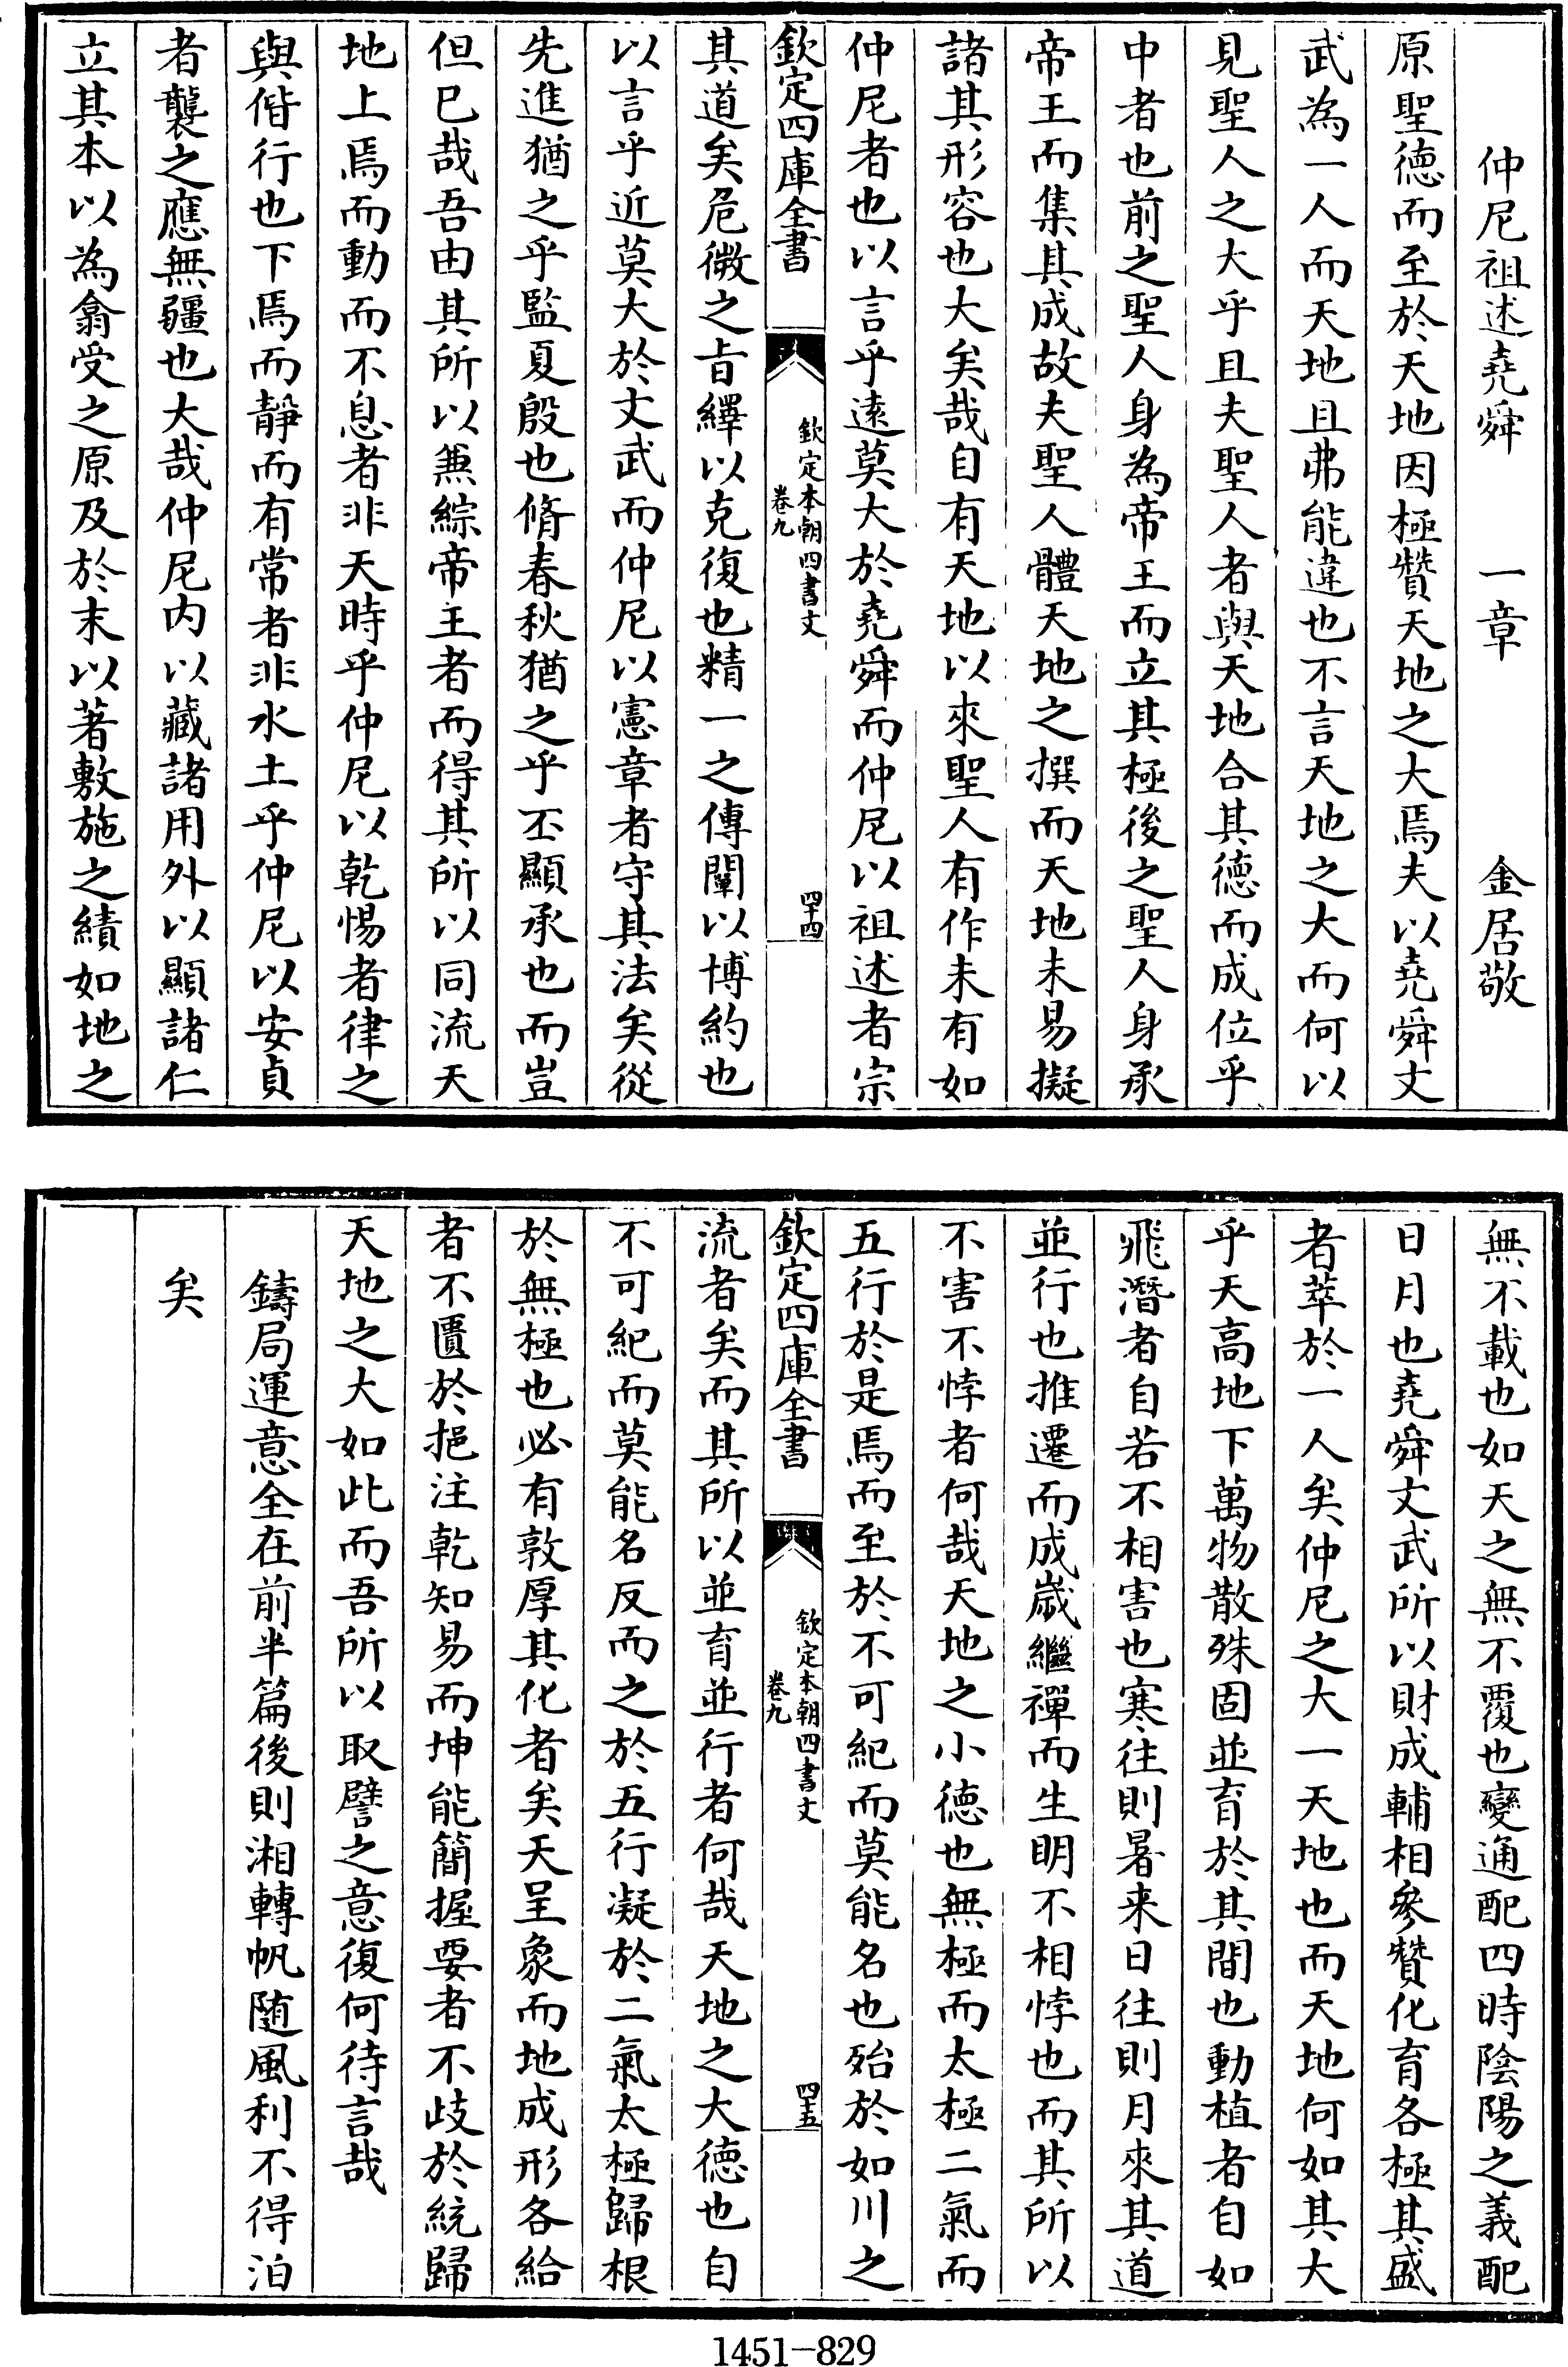 仲尼祖述堯舜　一章　金居敬
原聖德而至於天地因極贊天地之大焉夫以堯舜文
武為一人而天地且弗能違也不言天地之大而何以
見聖人之大乎且夫聖人者與天地合其德而成位乎
中者也前之聖人身為帝王而立其極後之聖人身承
帝王而集其成故夫聖人體天地之撰而天地未易擬
諸其形容也大矣哉自有天地以來聖人有作未有如
仲尼者也以言乎遠莫大於堯舜而仲尼以祖述者宗
欽定四庫全書　欽定本朝四書文　卷九　四十四
其道矣危微之旨繹以克復也精一之傳闡以博約也
以言乎近莫大於文武而仲尼以憲章者守其法矣從
先進猶之乎監夏殷也脩春秋猶之乎丕顯承也而豈
但已哉吾由其所以兼綜帝王者而得其所以同流天
地上焉而動而不息者非天時乎仲尼以乾惕者律之
與偕行也下焉而靜而有常者非水土乎仲尼以安貞
者襲之應無疆也大哉仲尼內以藏諸用外以顯諸仁
立其本以為翕受之原及於末以著敷施之績如地之
無不載也如天之無不覆也變通配四時陰陽之義配
日月也堯舜文武所以財成輔相參贊化育各極其盛
者萃於一人矣仲尼之大一天地也而天地何如其大
乎天高地下萬物散殊固並育於其間也動植者自如
飛潛者自若不相害也寒往則暑来日往則月來其道
並行也推遷而成歲繼禪而生明不相悖也而其所以
不害不悖者何哉天地之小德也無極而太極二氣而
五行於是焉而至於不可紀而莫能名也殆於如川之
欽定四庫全書　欽定本朝四書文　卷九　四十五
流者矣而其所以並育並行者何哉天地之大德也自
不可紀而莫能名反而之於五行凝於二氣太極歸根
於無極也必有敦厚其化者矣天呈象而地成形各給
者不匱於挹注乾知易而坤能簡握要者不歧於統歸
天地之大如此而吾所以取譬之意復何待言哉
鑄局運意全在前半篇後則湘轉帆随風利不得泊
矣
1451—829